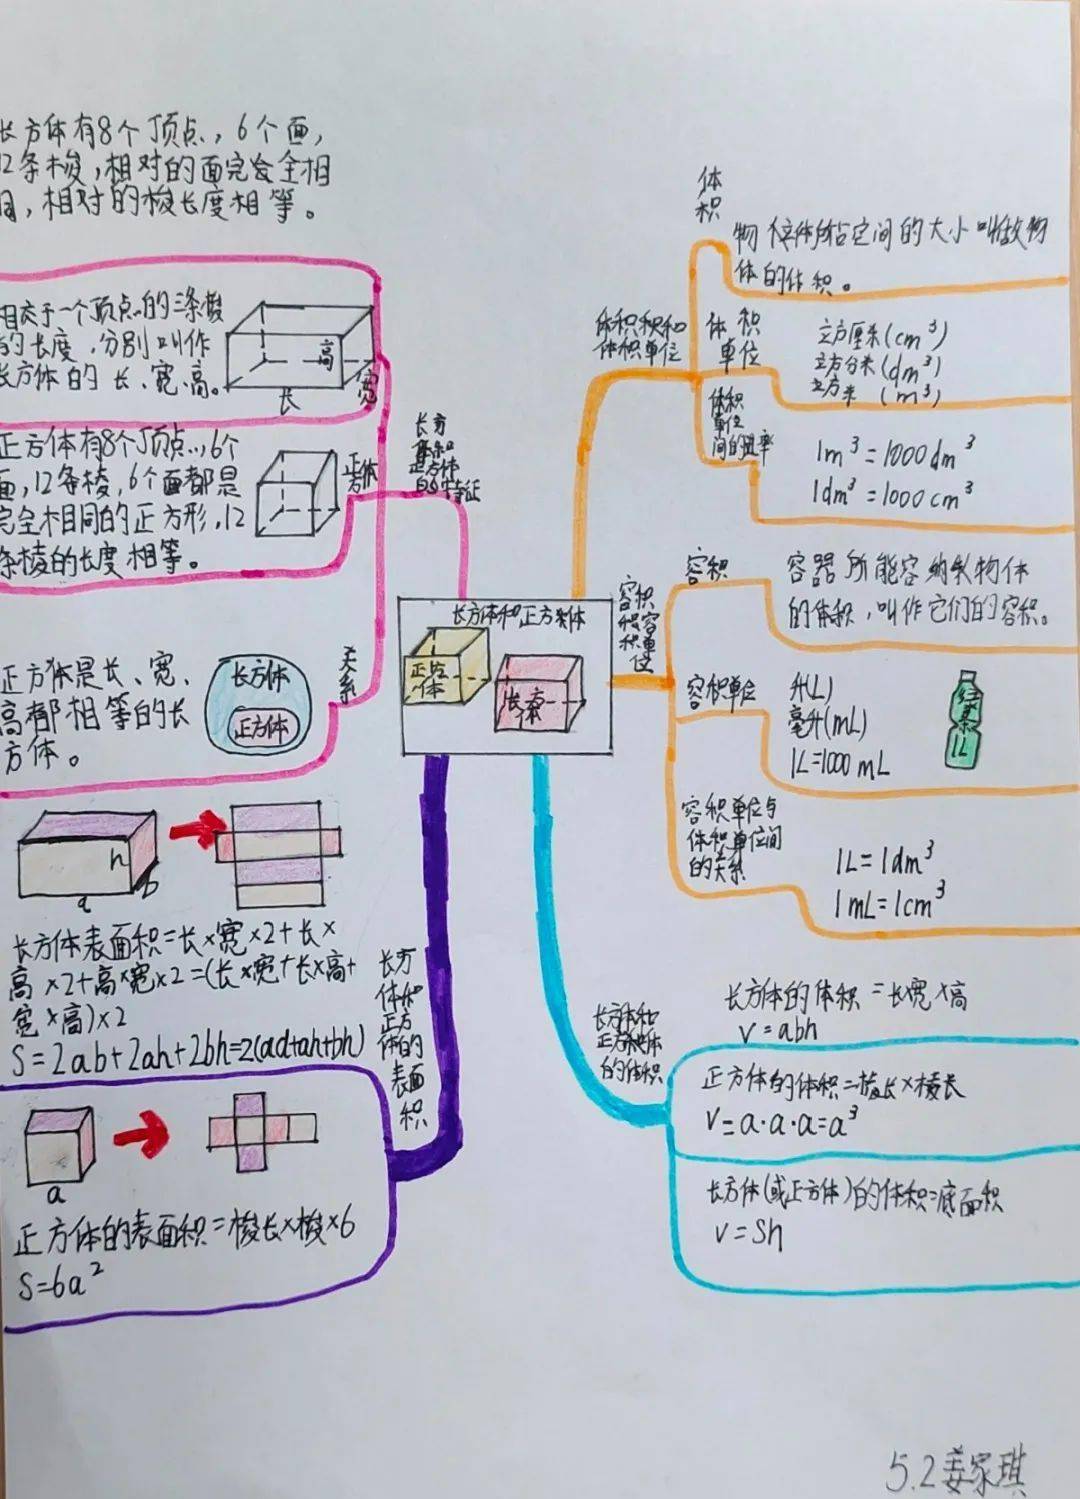 长方体有8个顶点，6个面，
12条棱，相对的面完全相
同，相对的棱长度相等。
相交于一个顶点的三条棱
的长度，分别叫作
长方体的长、宽、高。
高
长
宽
正方体有8个顶点，6个
面，12条棱，6个面都是
完全相同的正方形，12
条棱的长度相等。
正方体
长方
正方体
的特征
正方体是长、宽、
高都相等的长
方体。
长方体
正方体
关系
长方体和正方体
正方体
长方体
h
b
a
长方体表面积=长×宽×2+长×
高×2+高×宽×2=(长×宽+长×高+
宽×高)×2
S=2ab+2ah+2bh=2(ad+ah+bh)
长方
体和
正方
体的
表面
积
a
正方体的表面积=棱长×棱×6
S=6a²
体积和
体积单位
体
积
物体所占空间的大小叫做物
体的体积。
体积
单位
立方厘米(cm³)
立方分米(dm³)
立方米(m³)
体积
单位
间的进率
1m³=1000dm³
1dm³=1000cm³
容积
容积单位
容积
容器所能容纳物体
的体积，叫作它们的容积。
容积单位
升(L)
毫升(mL)
1L=1000mL
1L
容积单位与
体积单位间
的关系
1L=1dm³
1mL=1cm³
长方体和
正方体
的体积
长方体的体积=长宽×高
V=abh
正方体的体积=棱长×棱长
V=a·a·a=a³
长方体(或正方体)的体积=底面积
V=Sh
5.2姜家琪